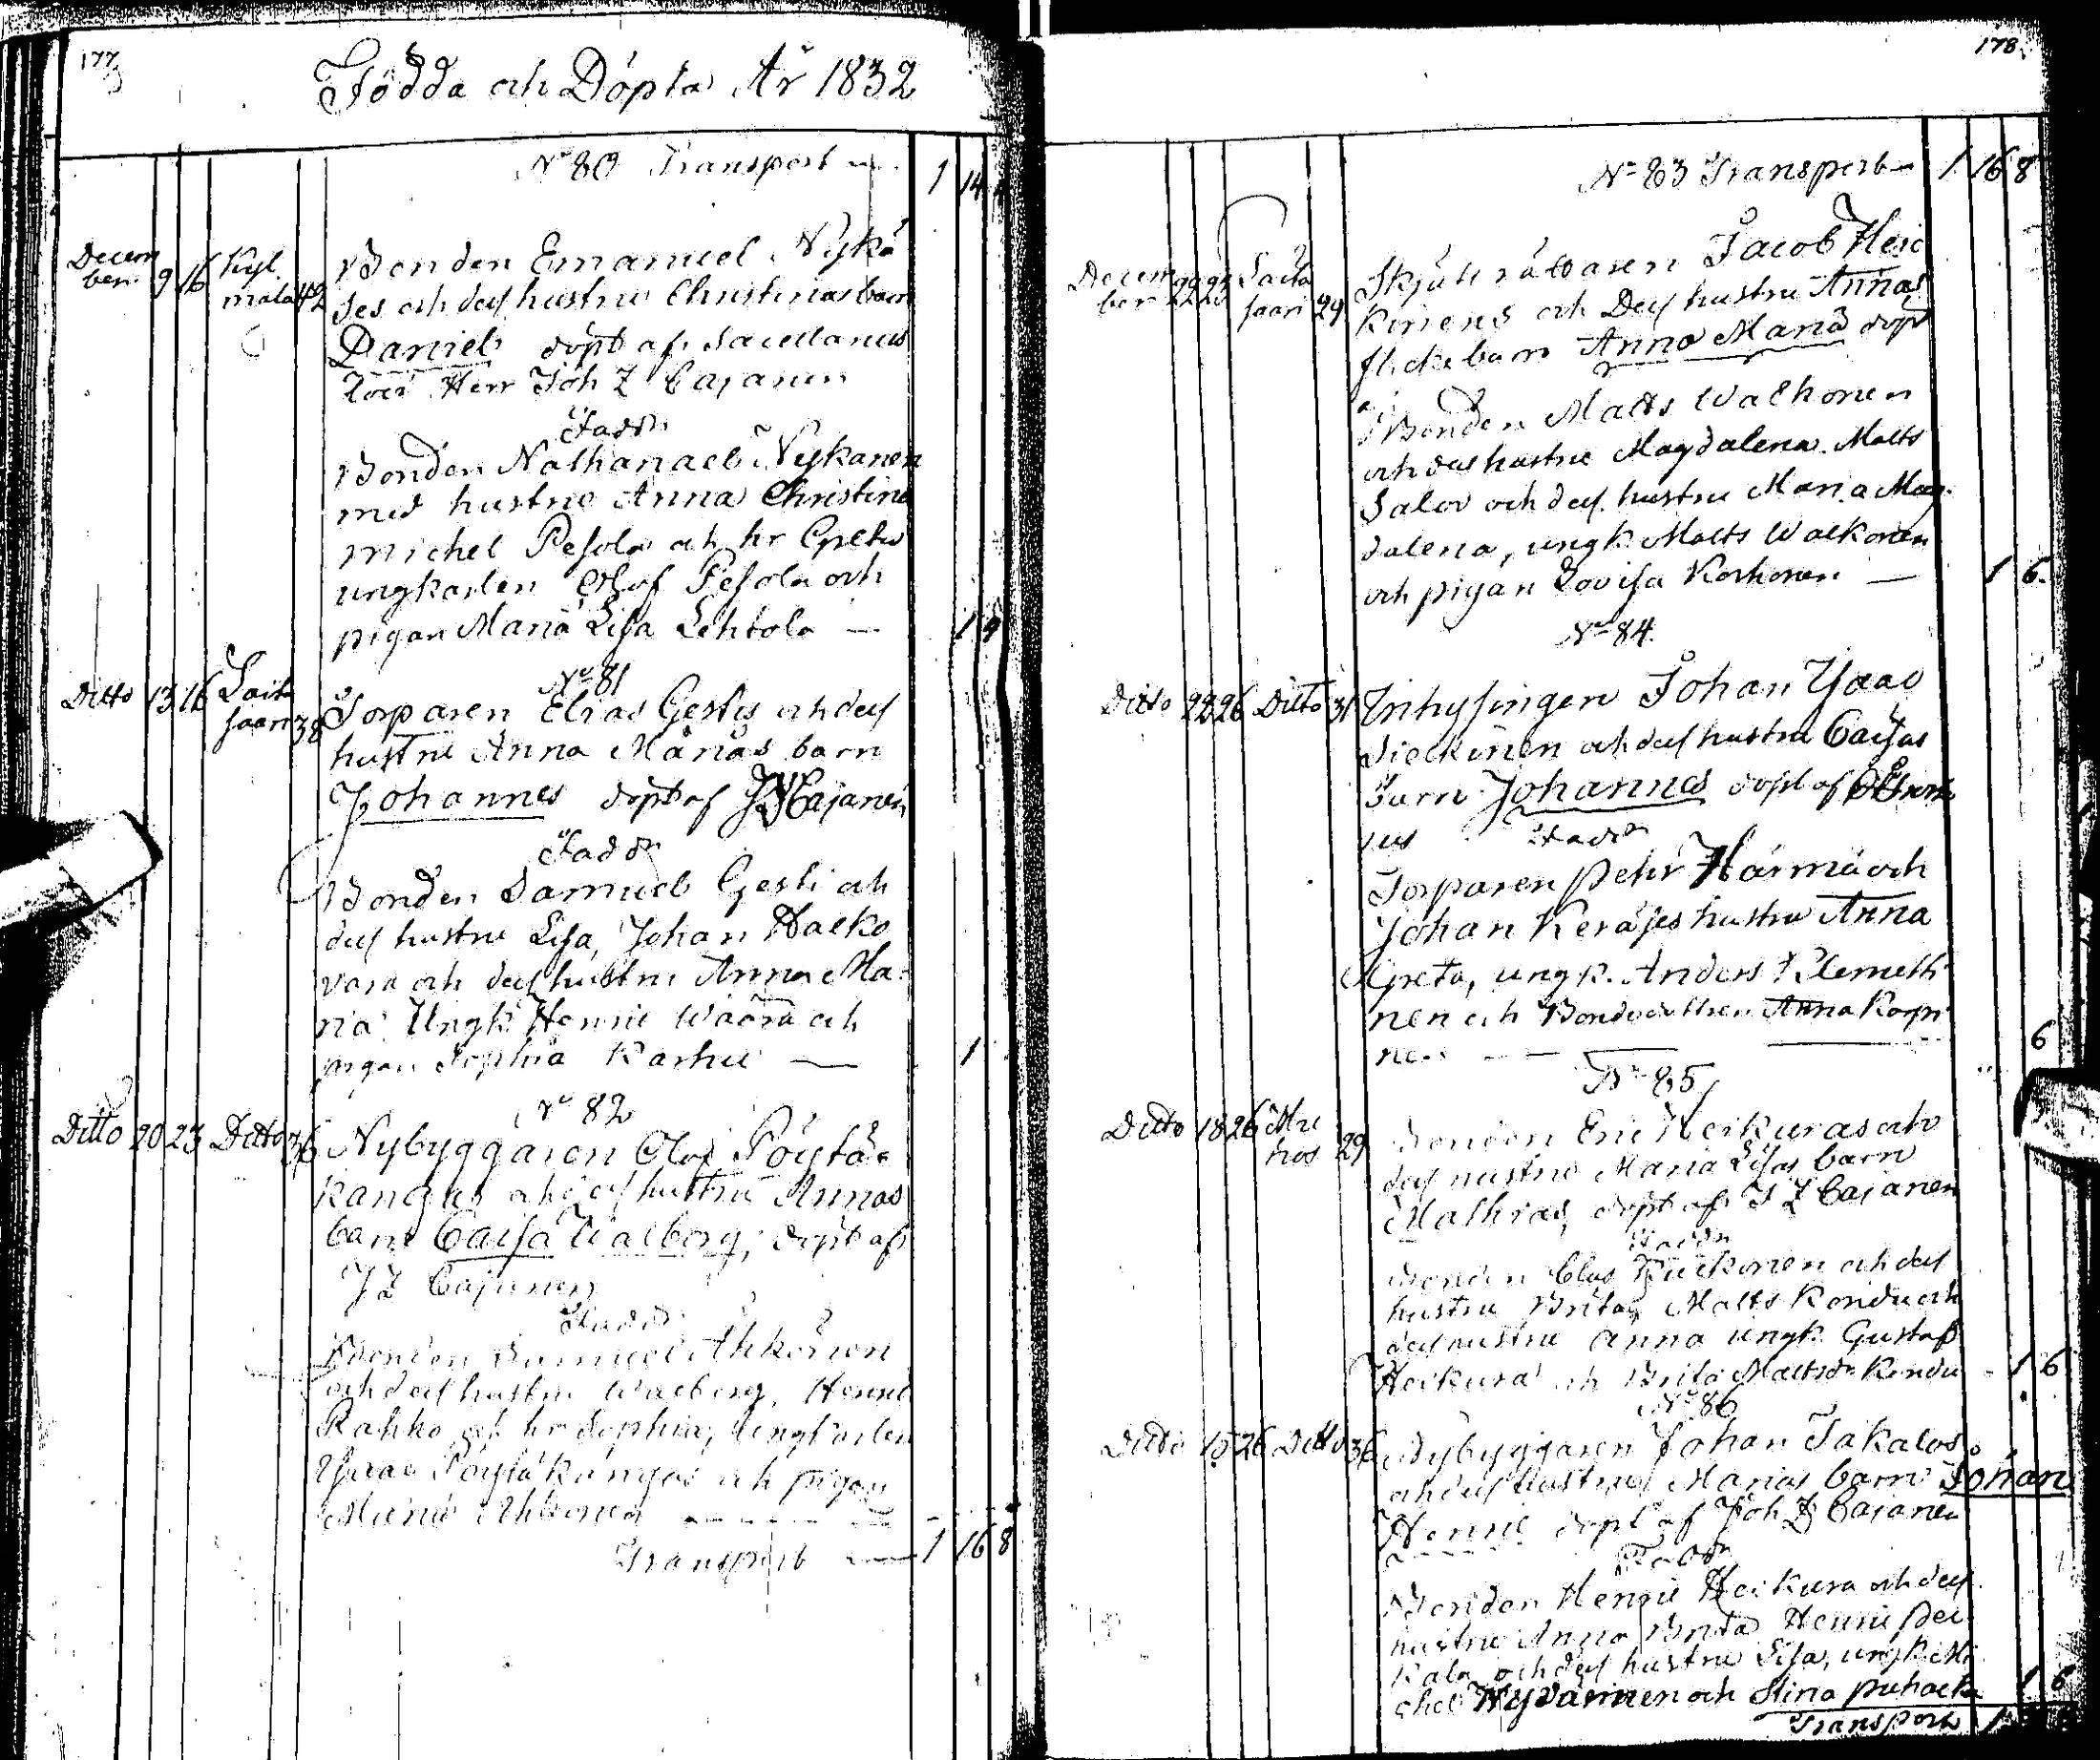 177
Födda och Döpta År 1832
No 80 Transport 1 14
Decem
ber 9 16 Kyl
mala 42
Bonden Emanuel Nykä
ses och dess hustru Christinas barn
Daniel döpt af Sacellanus
Herr Joh Z Cajanen
Fadd:
Bonden Nathanael Nykänen
med hustru Anna Christina
Michel Pesola och hr Greta
ungkarlen Olof Pesola och
pigan Maria Lisa Lehtola — 1
No 81
Ditto 13 16 Saita
saari 38 Torparen Elias Gestis och dess
hustru Anna Marias barn
Johannes döpt af JZ Cajanen
Fadd:
Bonden Samuel Gesti och
dess hustru Lisa, Johan Halko
vara och dess hustru Anna Ma-
ria Ungk. Henric Waara och
pigan Sophia Karhu — 1
No 82
Ditto 20 23 Ditto 36 Nybyggaren Olof Pöytä-
kangas och dess hustru Annas
barn Caisa Walborg, döpt af
J Z Cajanen
Fadd:
Bonden Samuel Ahkonen
och dess hustru Walborg, Henric
Rahko och hr Sophia, Ungkarlen
Isaac Pöytäkangas och pigan
Ahkonen
Transport — 1 16 8
178.
No 83 Transport — 1 16 8
Decem
ber 22 Saita
saari 29
Skjutsrättaren Jacob Heic
kinens och Dess hustru Annas
flickebarn Anna Maria döpt
Bonden Matts Walkonen
och dess hustru Magdalena. Matts
Salov och dess hustru Maria Mag-
dalena, ungk. Matts Walkonen
och pigan Lovisa Korhonen — 1 6.
No 84.
Ditto 22 26 Ditto 31 Inhysingen Johan Isaac
Sieckinen och dess hustru Caisas
Barn Johannes döpt af
Fadd:
Torparen Pehr Härmä och
Johan Keräjes hustru Anna
Greta, ungk. Anders Klemetti
nen och Bondedottren Anna Korpi
nen — 6
No 85
Ditto 18 26 29 Bonden Eric Heikuras och
dess hustru Maria Lisas barn
Mathias, döpt af J Z Cajanen
Fadd:
Bonden Clas och dess
hustru Brita, Matts Kondu och
dess hustru Anna ungk. Gustaf
Heikura och Brita Mattsdr Kondu 1 6
No 86
Ditto 15 26 Ditto 36 Nybyggaren Johan Takalos
och dess hustru Marias barn Johan
Henric döpt af Joh Z Cajanen
Fadd:
Bonden Henric Heikura och dess
hustru Anna Brita Henric Pei
kala och dess hustru Lisa, ungk. Mi
chel Nyvänen och Stina Puhacka 1 6
Transport 1